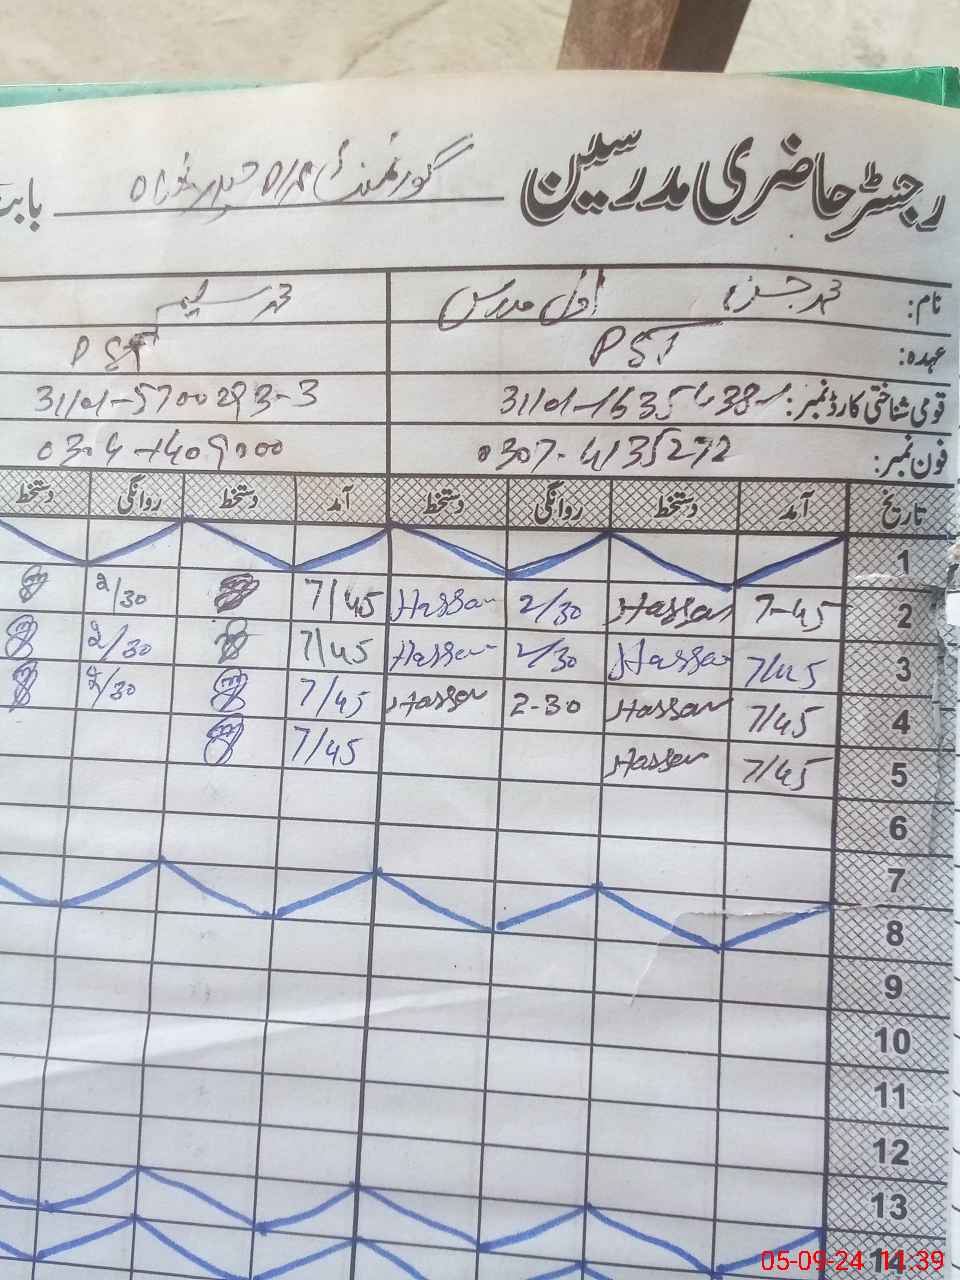 رجسٹر حاضری مدرسین گورنمنٹ بابت
نام: محمد حسن اول مدرس محمد سلیم
عہدہ: PST PST
قومی شناختی کارڈ نمبر: 31101-5700293-3
فون نمبر: 0307-4135272
تاریخ آمد دستخط روانگی دستخط آمد دستخط روانگی دستخط
1
2 7-45 Hassan 2/30 Hassan 7/45 2/30
3 7/45 Hassan 2/30 Hassan 7/45 2/30
4 7/45 Hassan 2-30 Hassan 7/45 2/30
5 7/45 Hassan 7/45
6
7
8
9
10
11
12
13
14
05-09-24 11:39